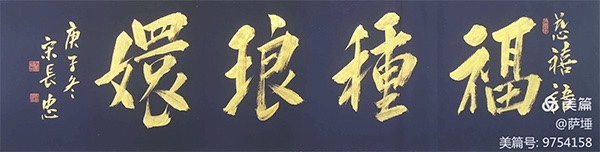 慈禧
福種琅嬛
庚子冬
宋長忠
美篇
@萨埵
美篇号: 9754158